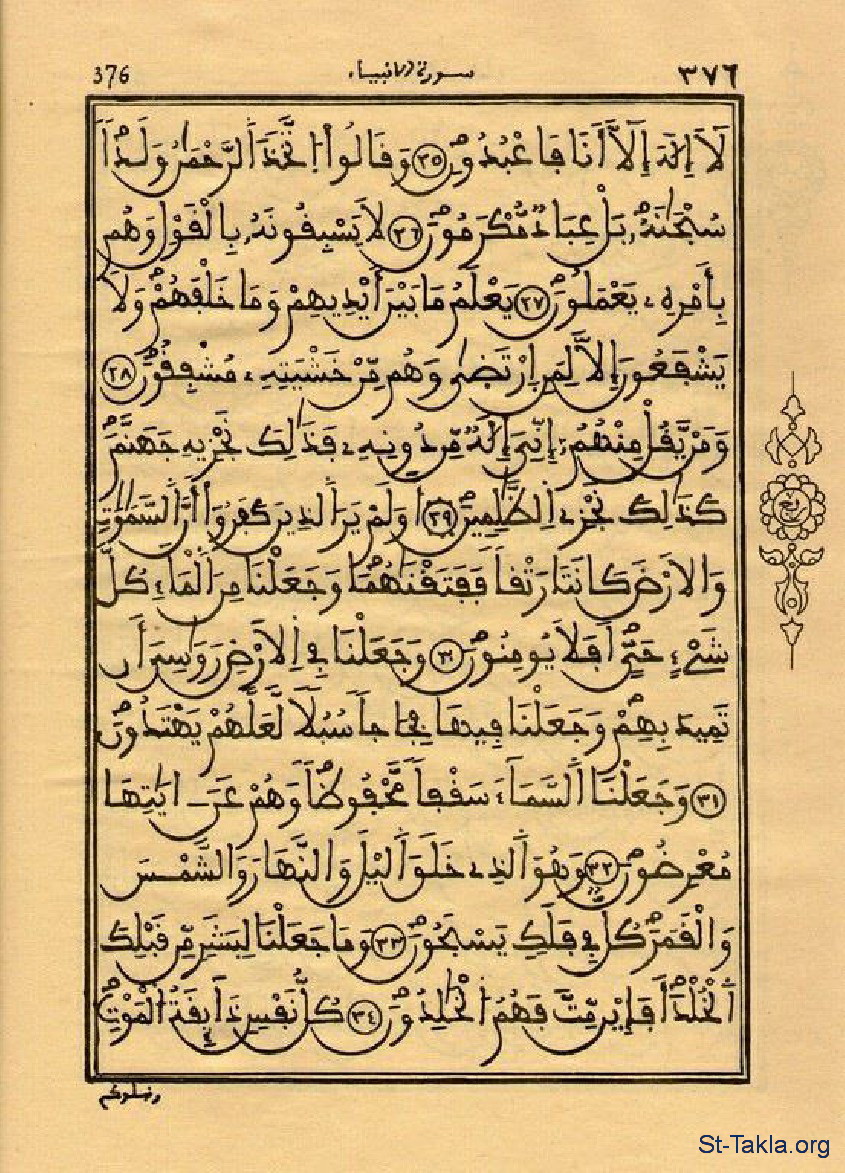 ٣٧٦ سورة الانبياء 376
لَآ إِلَٰهَ إِلَّآ أَنَا فَاعْبُدُونِ ٢٥ وَقَالُواْ اُتَّخَذَ اَلرَّحْمَٰنُ وَلَداً
سُبْحَٰنَهُۥ بَلْ عِبَادٌ مُّكْرَمُونَ ٢٦ لَا يَسْبِقُونَهُۥ بِالْقَوْلِ وَهُم
بِأَمْرِهِۦ يَعْمَلُونَ ٢٧ يَعْلَمُ مَا بَيْنَ أَيْدِيهِمْ وَمَا خَلْفَهُمْ وَلَا
يَشْفَعُونَ إِلَّا لِمَنِ اِرْتَضَىٰ وَهُم مِّنْ خَشْيَتِهِۦ مُشْفِقُونَ ٢٨
وَمَنْ يَّقُلْ مِنْهُمُۥٓ إِنِّيَ إِلَٰهٌ مِّن دُونِهِۦ فَذَٰلِكَ نَجْزِيهِ جَهَنَّمَ
كَذَٰلِكَ نَجْزِے اِلظَّٰلِمِينَ ٢٩ أَوَلَمْ يَرَ اَلذِينَ كَفَرُوٓاْ أَنَّ اَلسَّمَٰوَٰتِ
وَالَارْضَ كَانَتَا رَتْقاً فَفَتَقْنَٰهُمَا وَجَعَلْنَا مِنَ اَلْمَآءِ كُلَّ
شَےْءٍ حَيٍّ اَفَلَا يُومِنُونَ ٣٠ وَجَعَلْنَا فِے اِلَارْضِ رَوَٰسِيَ أَن
تَمِيدَ بِهِمْ وَجَعَلْنَا فِيهَا فِجَاجاً سُبُلاً لَّعَلَّهُمْ يَهْتَدُونَ
٣١ وَجَعَلْنَا اَلسَّمَآءَ سَقْفاً مَّحْفُوظاً وَهُمْ عَنَ ـايَٰتِهَا
مُعْرِضُونَ ٣٢ وَهُوَ اَلذِے خَلَقَ اَليْلَ وَالنَّهَارَ وَالشَّمْسَ
وَالْقَمَرَ كُلٌّ فِے فَلَكٍ يَسْبَحُونَ ٣٣ وَمَا جَعَلْنَا لِبَشَرٍ مِّن قَبْلِكَ
اَلْخُلْدَ أَفَإِيْن مِّتَّ فَهُمُ اُلْخَٰلِدُونَ ٣٤ كُلُّ نَفْسٍ ذَآئِقَةُ اُلْمَوْتِ
ونبلوكم
ربع
St-Takla.org